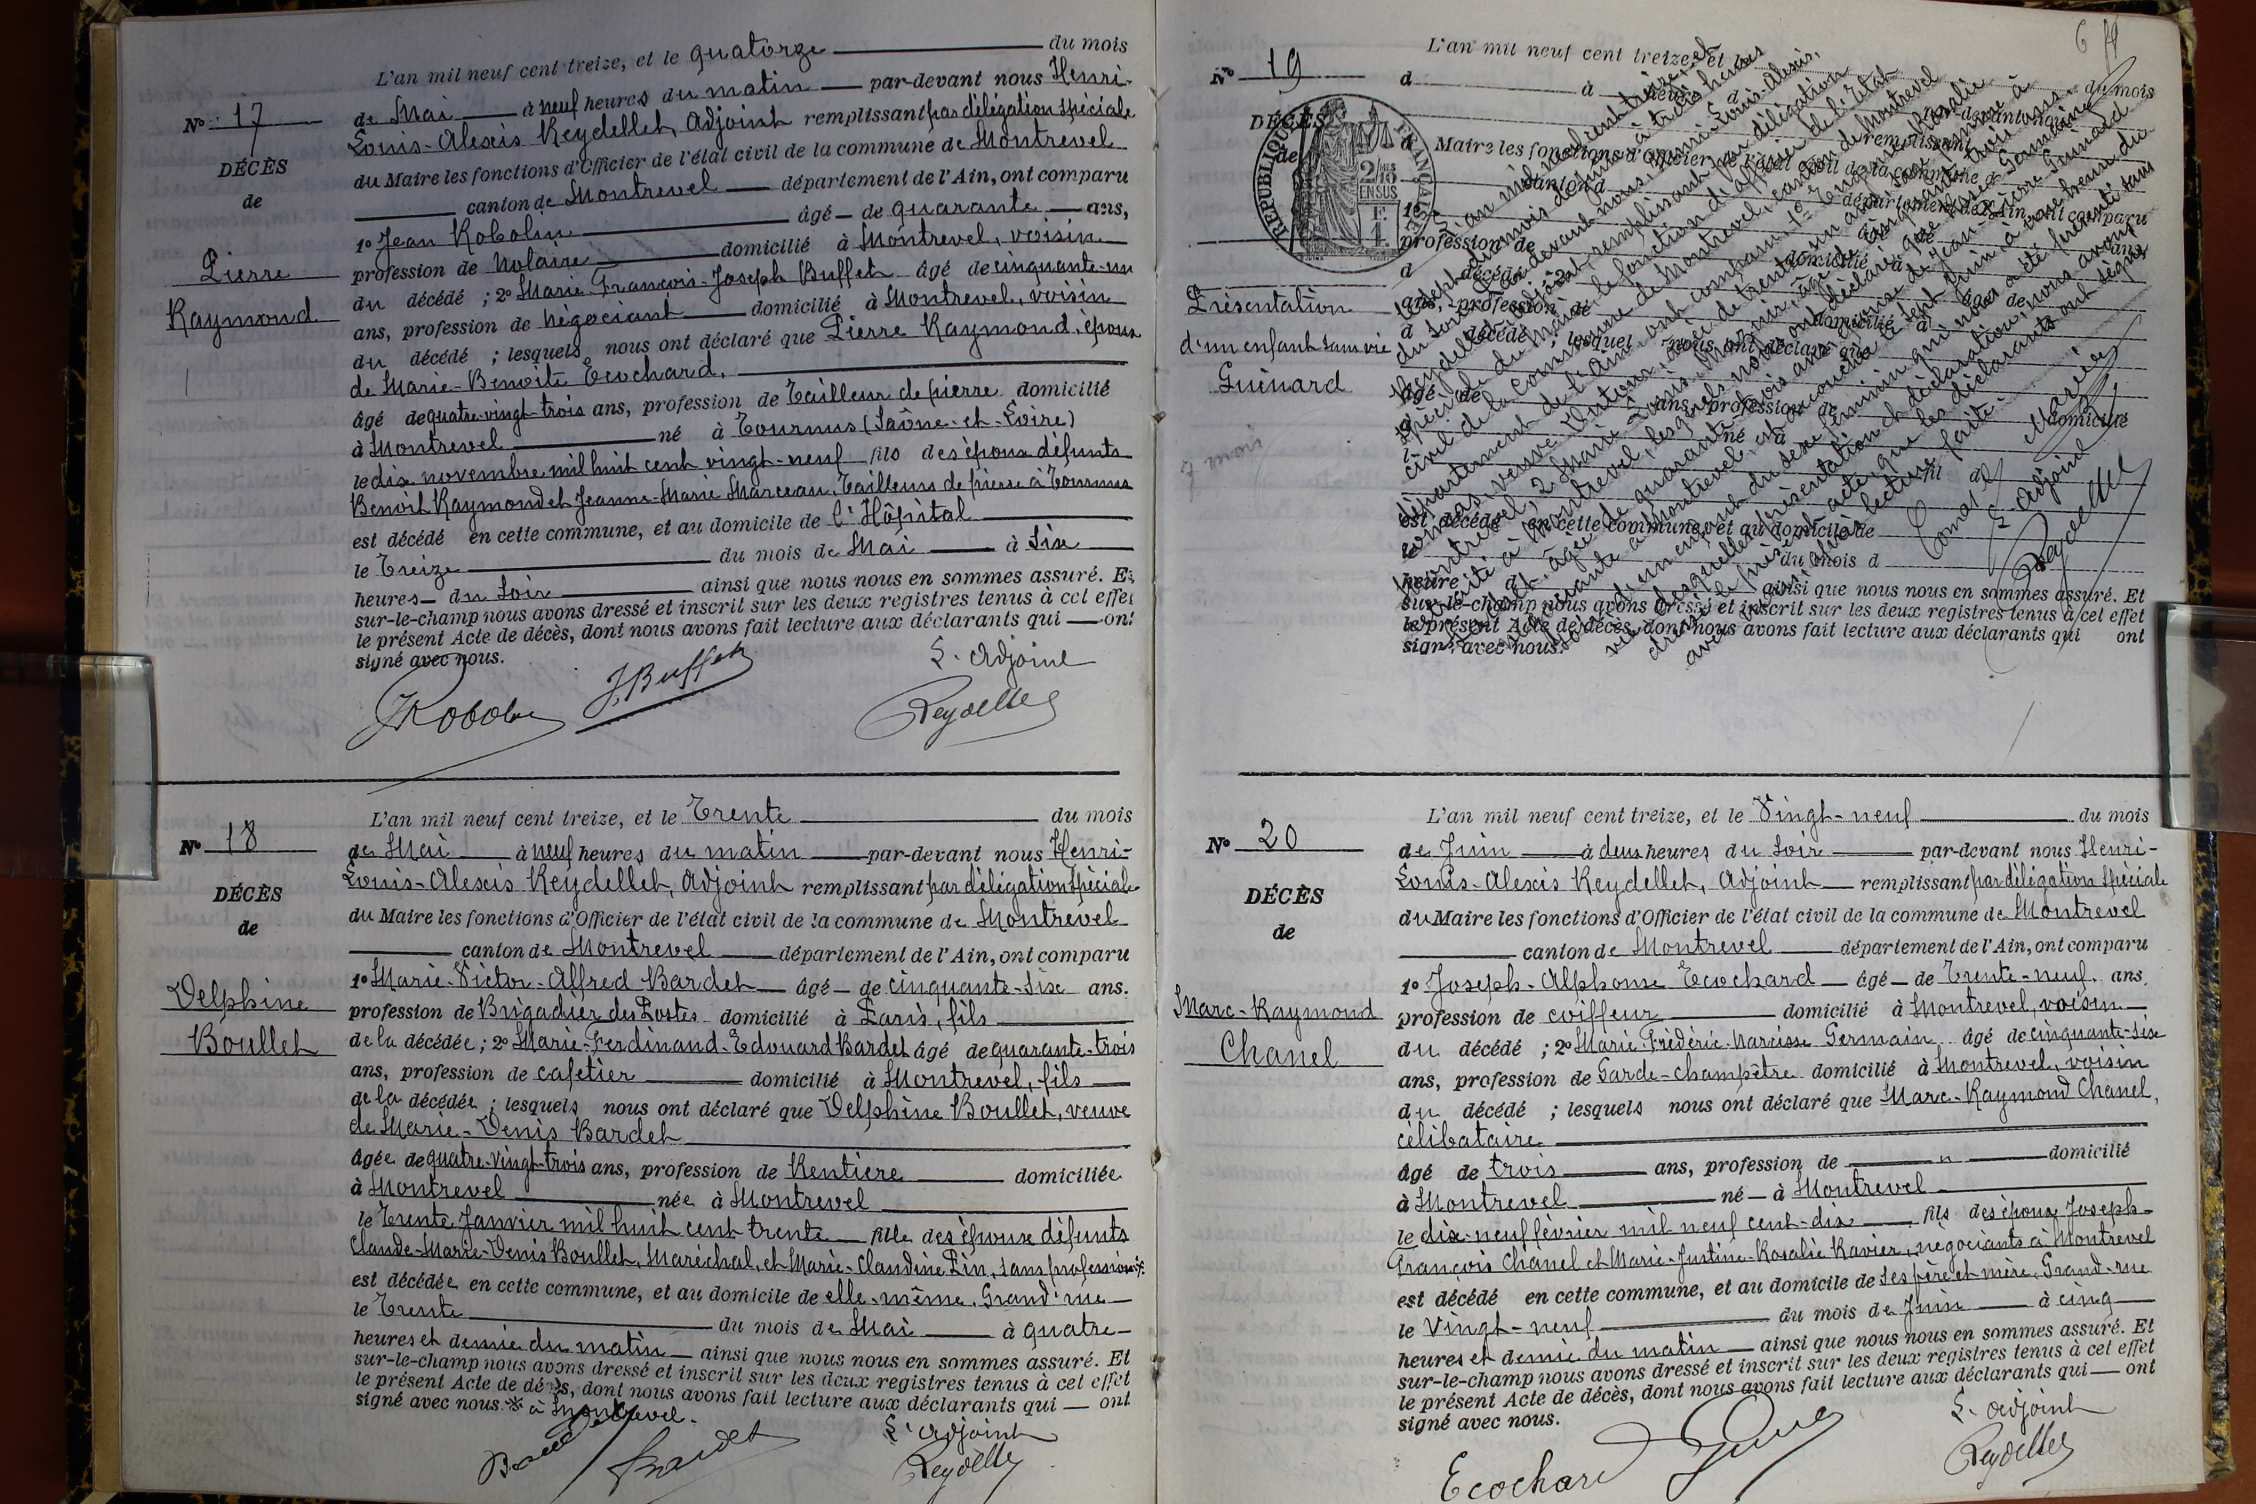 L'an mil neuf cent treize, et le quatorze du mois
No 17 de Mai à neuf heures du matin par-devant nous Henri-
Louis-Alexis Reydellet, Adjoint remplissant par délégation spéciale
DÉCÈS du Maire les fonctions d'Officier de l'état civil de la commune de Montrevel
de canton de Montrevel département de l'Ain, ont comparu
1o Jean Robolin âgé de quarante ans,
Pierre profession de Notaire domicilié à Montrevel, voisin
du décédé ; 2o Marie François-Joseph Buffet âgé de cinquante-un
Raymond ans, profession de Négociant domicilié à Montrevel, voisin
du décédé ; lesquels nous ont déclaré que Pierre Raymond, époux
de Marie-Benoîte Ecochard,
âgé de quatre-vingt-trois ans, profession de Tailleur de pierre domicilié
à Montrevel né à Tournus (Saône-et-Loire)
le dix novembre mil huit cent vingt-neuf fils des époux défunts
Benoit Raymond et Jeanne-Marie Marceau, Tailleurs de pierre à Tournus
est décédé en cette commune, et au domicile de l'Hôpital
le Treize du mois de Mai à Six
heures du Soir ainsi que nous nous en sommes assuré. Et
sur-le-champ nous avons dressé et inscrit sur les deux registres tenus à cet effet
le présent Acte de décès, dont nous avons fait lecture aux déclarants qui ont
signé avec nous.
L'adjoint
JRobolin J. Buffet Reydellet
L'an mil neuf cent treize, et le Trente du mois
No 18 de Mai à neuf heures du matin par-devant nous Henri-
Louis-Alexis Reydellet, Adjoint remplissant par délégation spéciale
DÉCÈS du Maire les fonctions d'Officier de l'état civil de la commune de Montrevel
de canton de Montrevel département de l'Ain, ont comparu
1o Marie-Victor-Alfred Bardet âgé de cinquante-six ans.
Delphine profession de Brigadier des Postes domicilié à Paris, fils
Boullet de la décédée ; 2o Marie-Ferdinand-Edouard Bardet âgé de quarante-trois
ans, profession de cafetier domicilié à Montrevel, fils
de la décédée ; lesquels nous ont déclaré que Delphine Boullet, veuve
de Marie-Denis Bardet
âgée de quatre-vingt-trois ans, profession de Rentière domiciliée
à Montrevel née à Montrevel
le Trente Janvier mil huit cent trente fille des époux défunts
Claude-Marie-Denis Boullet, Maréchal, et Marie-Claudine Pin, sans profession
est décédée en cette commune, et au domicile de elle-même, Grand'rue
le Trente du mois de Mai à quatre
heures et demie du matin ainsi que nous nous en sommes assuré. Et
sur-le-champ nous avons dressé et inscrit sur les deux registres tenus à cet effet
le présent Acte de décès, dont nous avons fait lecture aux déclarants qui ont
signé avec nous. * à Montrevel.
L'adjoint
Bardet Bardet Reydellet
L'an mil neuf cent treize, et le
No 19
DÉCÈS
de
RÉPUBLIQUE FRANÇAISE
2/10 EN SUS
Présentation
d'un enfant sans vie
Guinard
L'an mil neuf cent treize, et
le sept du mois de Juin à trois heures
du Soir par devant nous, Henri-Louis-Alexis
Reydellet, adjoint, remplissant par délégation
spéciale du Maire, les fonctions d'officier de l'Etat
civil de la commune de Montrevel, canton de Montrevel
département de l'Ain, ont comparu
d Maire les fonctions d'Officier de l'état civil de la commune d
canton d département de l'Ain, ont comparu
profession de domicilié à
ans, profession de domicilié à
d décédé ; lesquel nous ont déclaré que
âgé de ans, profession de domicilié
né à
est décédé en cette commune, et au domicile de
le du mois d
heure d ainsi que nous nous en sommes assuré. Et
sur-le-champ nous avons dressé et inscrit sur les deux registres tenus à cet effet
le présent Acte de décès, dont nous avons fait lecture aux déclarants qui ont
signé avec nous.
L'adjoint
Reydellet
L'an mil neuf cent treize, et le Vingt-neuf du mois
No 20 de Juin à deux heures du Soir par-devant nous Henri-
Louis-Alexis Reydellet, Adjoint remplissant par délégation spéciale
DÉCÈS du Maire les fonctions d'Officier de l'état civil de la commune de Montrevel
de canton de Montrevel département de l'Ain, ont comparu
1o Joseph-Alphonse Ecochard âgé de Trente-neuf ans.
Marc-Raymond profession de coiffeur domicilié à Montrevel, voisin
Chanel du décédé ; 2o Marie-Frédéric-Narcisse Germain âgé de cinquante-six
ans, profession de Garde-champêtre domicilié à Montrevel, voisin
du décédé ; lesquels nous ont déclaré que Marc-Raymond Chanel,
célibataire
âgé de trois ans, profession de " domicilié
à Montrevel né à Montrevel
le dix-neuf février mil neuf cent-dix fils des époux Joseph-
François Chanel et Marie-Justine-Rosalie Ravier, négociants à Montrevel
est décédé en cette commune, et au domicile de ses père et mère, Grand-rue
le Vingt-neuf du mois de Juin à cinq
heures et demie du matin ainsi que nous nous en sommes assuré. Et
sur-le-champ nous avons dressé et inscrit sur les deux registres tenus à cet effet
le présent Acte de décès, dont nous avons fait lecture aux déclarants qui ont
signé avec nous.
L'adjoint
Ecochard Reydellet